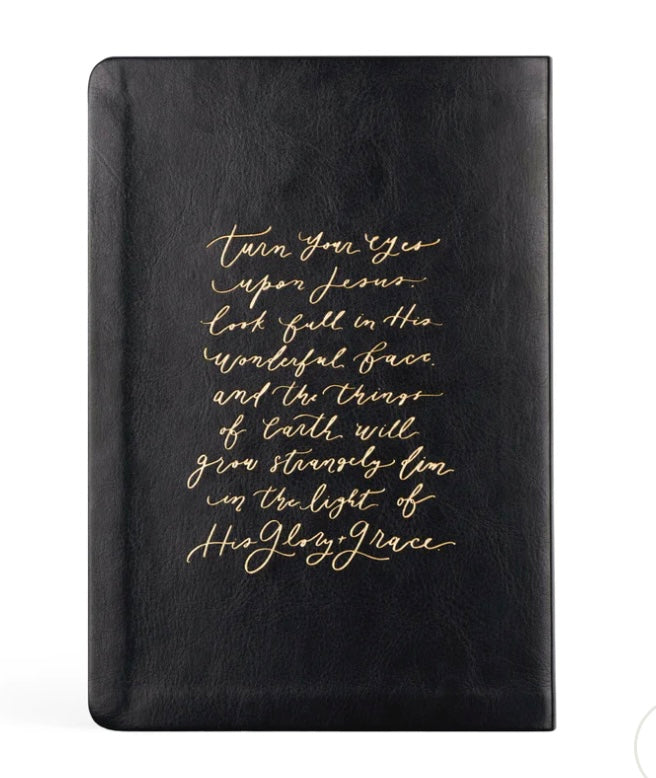 Turn Your Eyes
upon Jesus.
look full in His
wonderful face.
and the things
of Earth will
grow strangely dim
in the light of
His Glory + Grace.